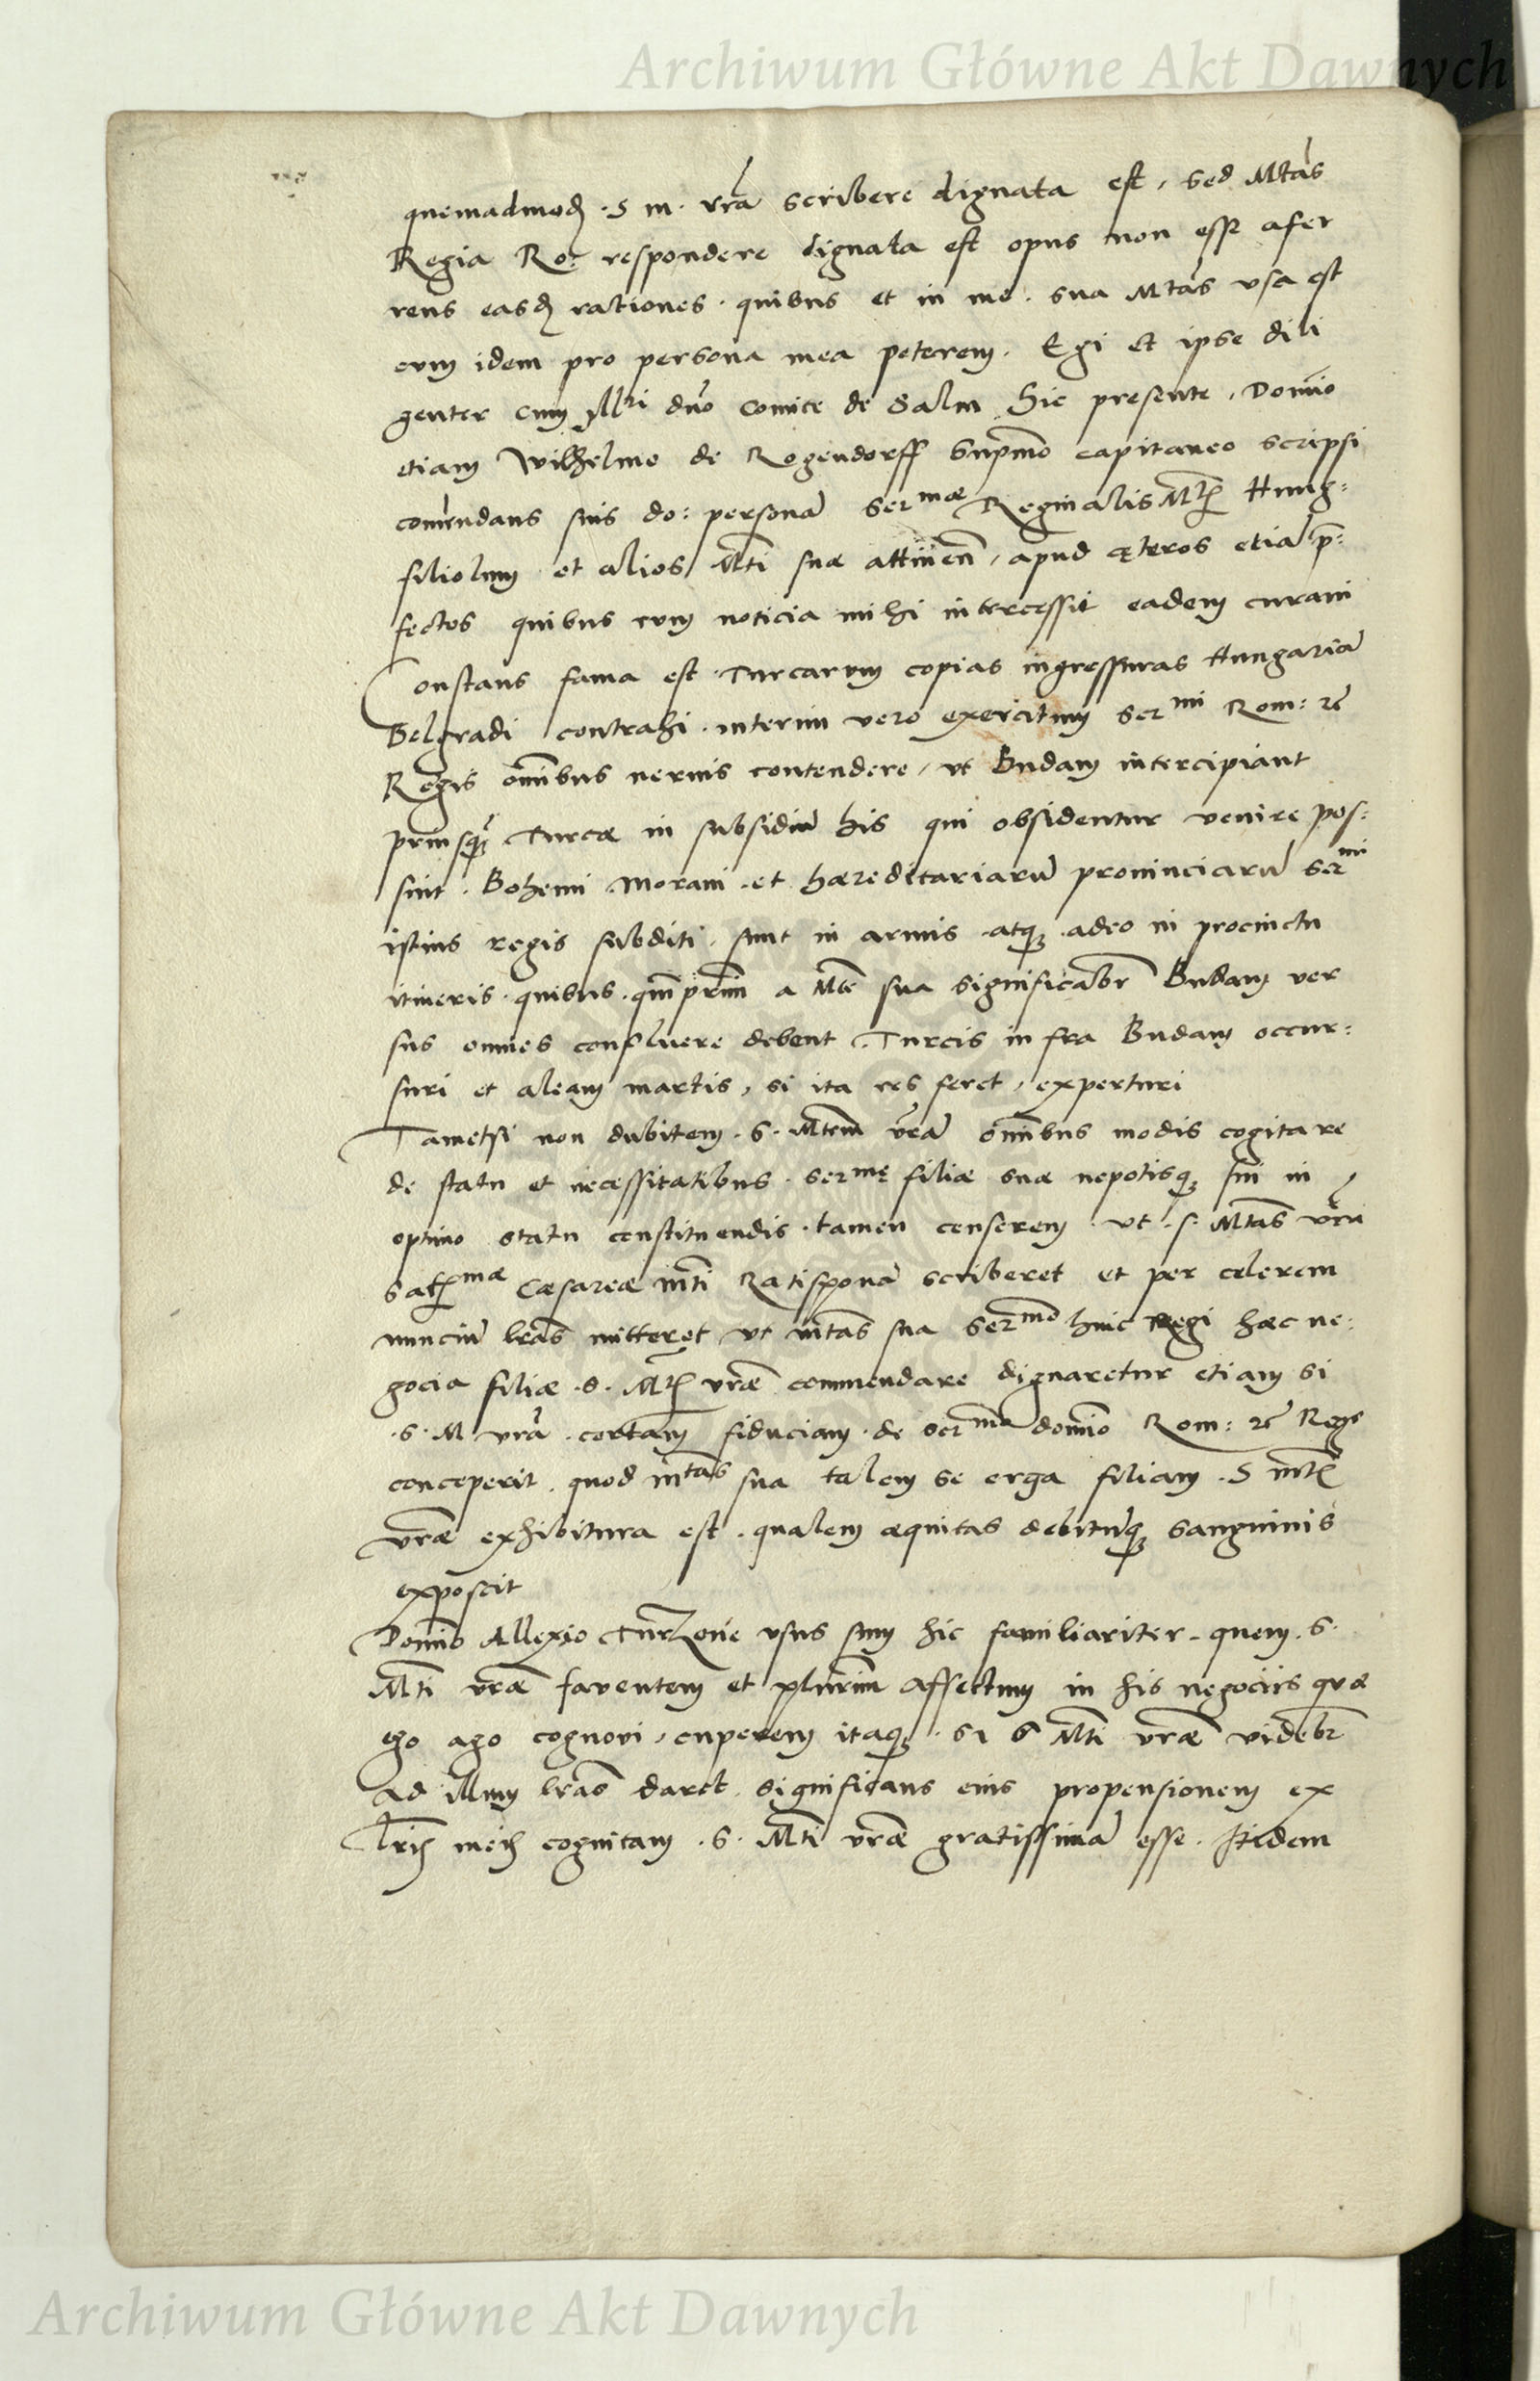 Archiwum Główne Akt Dawnych
quemadmod. S m. vrā scribere dignata est, sed Mtās
Regia Ro: respondere dignata est opus non esse afer
rens easd rationes. quibus et in me. sua Mtās vsa est
cvm idem pro persona mea peterem. Egi et ipse dili
genter cum Illri dno comite de Salm hic presente, Domio
etiam Wilhelmo de Rogendorff supmo capitaneo scripsi
comendans suis do: personā Sermae Reginalis Mtis Hung:
filiolum et alios Mti suæ attinen, apud cęteros etiā p:
fectos quibus cvm noticia mihi intercessit eadem curavi
Constans fama est Turcarvm copias ingressuras Hungariā
Belgradi contrahi. interim vero exercitum Sermi Rom: rē
Regis omībus nervis contendere, vt Budam intercipiant
priusqꝫ Turcæ in subsidiū his qui obsidentur venire pos:
sint. Bohemi Moravi et hæreditariarū provinciarū Sermi
istius regis subditi, sunt in armis atqꝫ adeo in procinctu
itineris. quibus. qmprim a Mte sua significabr Budam ver
sus omnes confluere debent Turcis infra Budam occur:
suri et aleam martis, si ita res feret, experturi
Tametsi non dubitem. S. Mtem vrā omībus modis cogitare
de statu et necessitatibus. sermę filiæ suæ nepotisqꝫ sui in
optimo statu constituendis. tamen censerem vt. S. Mtās vrā
Satismæ Cæsareæ mti Ratisponā scriberet et per celerem
nunciū lrās mitteret vt mtās sua Sermo huic Regi hæc ne:
gocia filiæ. S. Mtis vræ commendare dignaretur etiam si
S. M vrā. certam fiduciam. de sermo domio Rom: rē Rege
conceperit. quod mtās sua talem se erga filiam. S mtis
vræ exhibitura est. qualem æquitas debitūqꝫ sanguinis
exposcit
Domio Allexio Turzone vsus sum hic familiariter. quem. S.
Mti vræ faventem et plurim affectum in his negociis quæ
ego ago cognovi, cuperem itaqꝫ. si S Mti vræ videbr
ad illum lrās daret. significans eius propensionem ex
lris meis cognitam. S. Mti vræ gratissimā esse. Itidem
Archiwum Główne Akt Dawnych